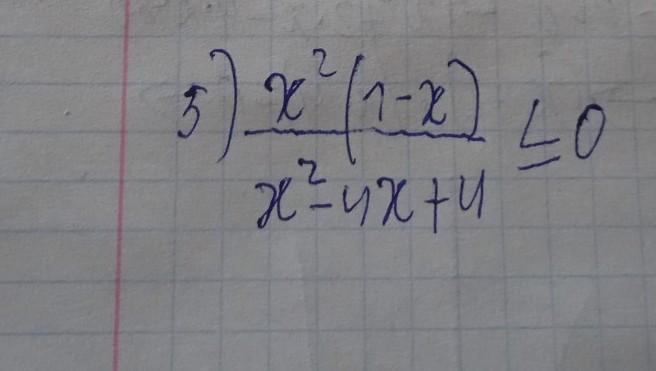 5) x²(1-x)
x²-4x+4 ≤ 0